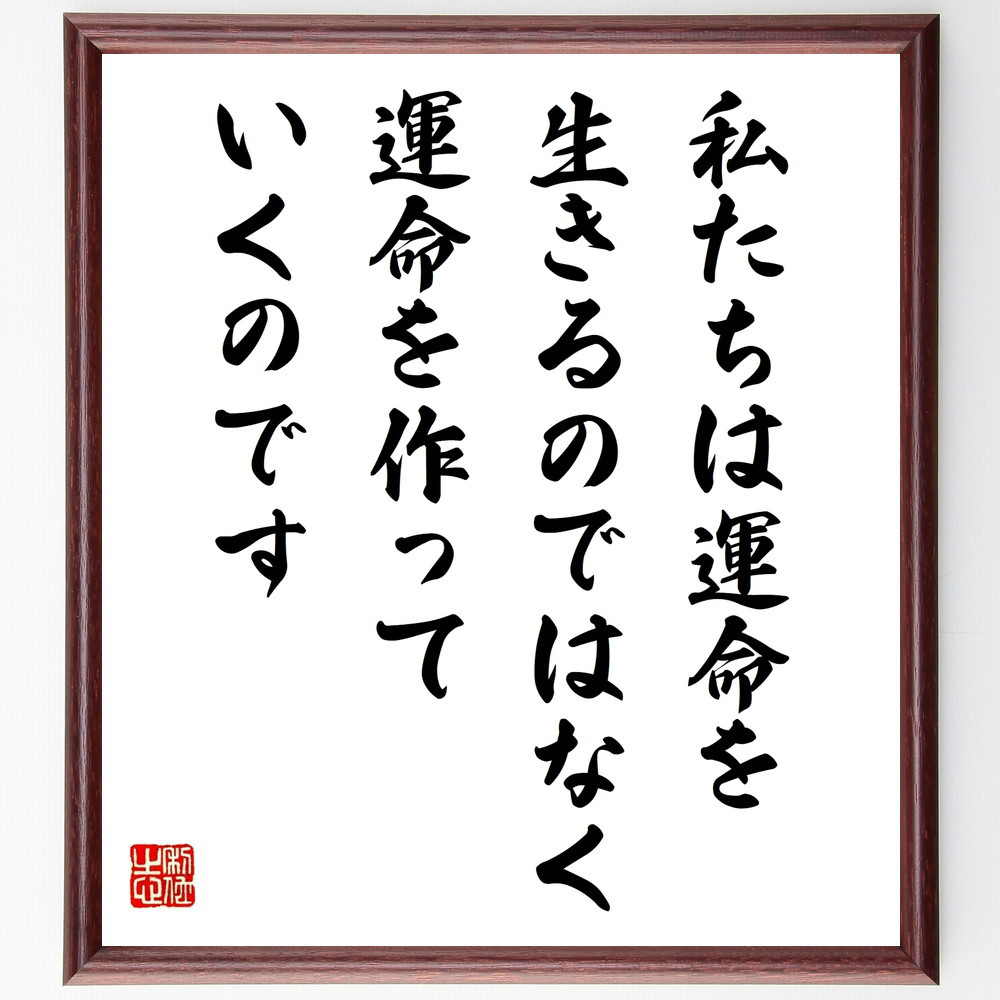 私たちは運命を
生きるのではなく
運命を作って
いくのです